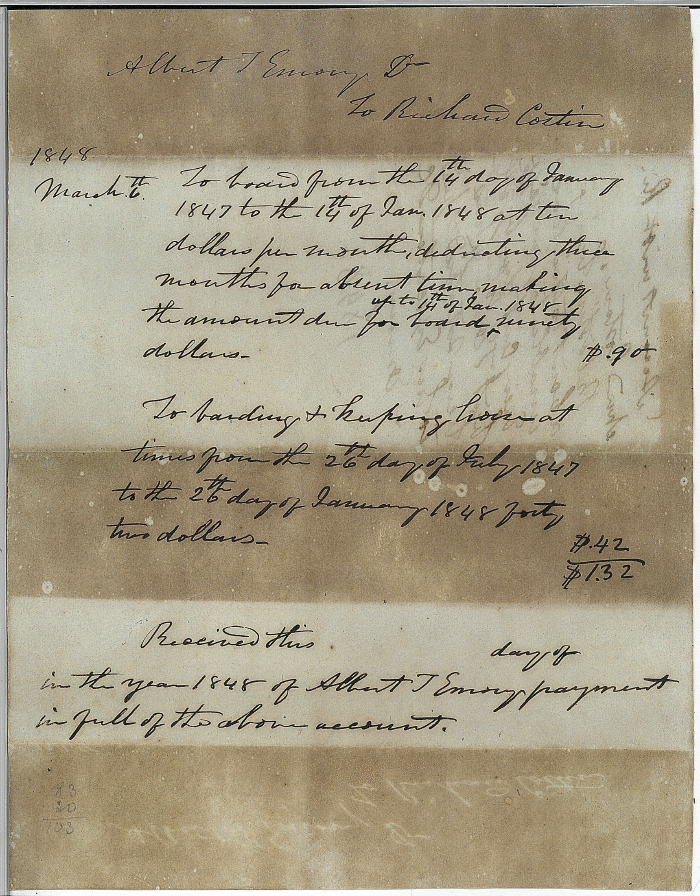 Albert T Emory Dr
To Richard Costin
1848
March 6th. To board from the 14th day of January
1847 to the 14th of Jan. 1848 at ten
dollars per month, deducting three
months for absent time, making
up to 14th of Jan. 1848
the amount due for board ^ ninety
dollars- $.90
To boarding & keeping horse at
times from the 26th day of July 1847
to the 26th day of January 1848 forty
two dollars- $.42
$132
Received this day of
in the year 1848 of Albert T Emory payment
in full of the above account.
83
20
103